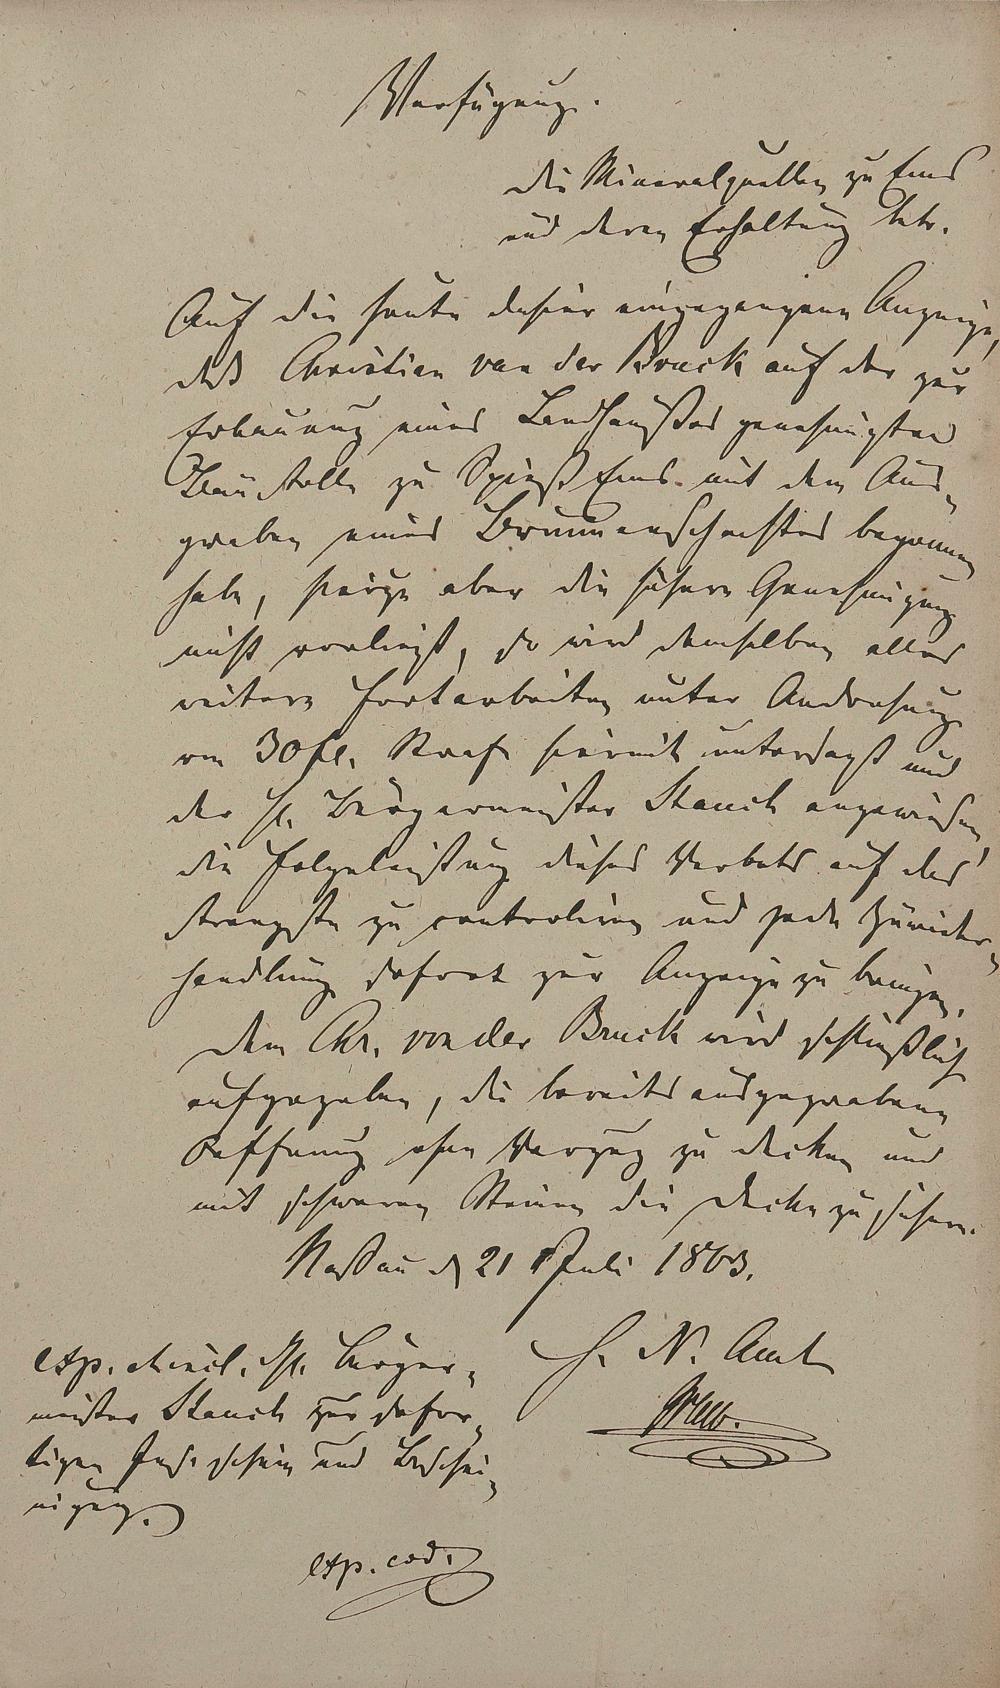 Verfügung.
die Mineralquellen zu Ems
und deren Erhaltung betr.
Auf die heute dahier eingegangene Anzeige,
daß Christian von der Bruck auf der zur
Erbauung eines Landhaußes genehmigten
Baustelle zu Spieß Ems mit dem Aus-
graben eines Brunnenschachtes begonnen
habe, hierzu aber die höhere Genehmigung
nicht vorliegt, so wird demselben alles
weitere Fortarbeiten unter Androhung
von 30 fl. Straf hiermit untersagt und
der H. Bürgermeister Stauch angewiesen,
die Folgeleistung dieses Verbots auf das
strengste zu controliren und jede Zuwider-
handlung sofort zur Anzeige zu bringen.
Dem Chr. von der Bruck wird schließlich
aufgegeben, die bereits ausgegrabene
Oeffnung ohne Verzug zu decken und
mit schweren Steinen die Decke zu sichern.
Naßau d 21 Juli 1863.
H. N. Amt
exp. H. Bürger-
meister Stauch zur sofor-
tigen und Beschei-
nigung.
exp. eod.